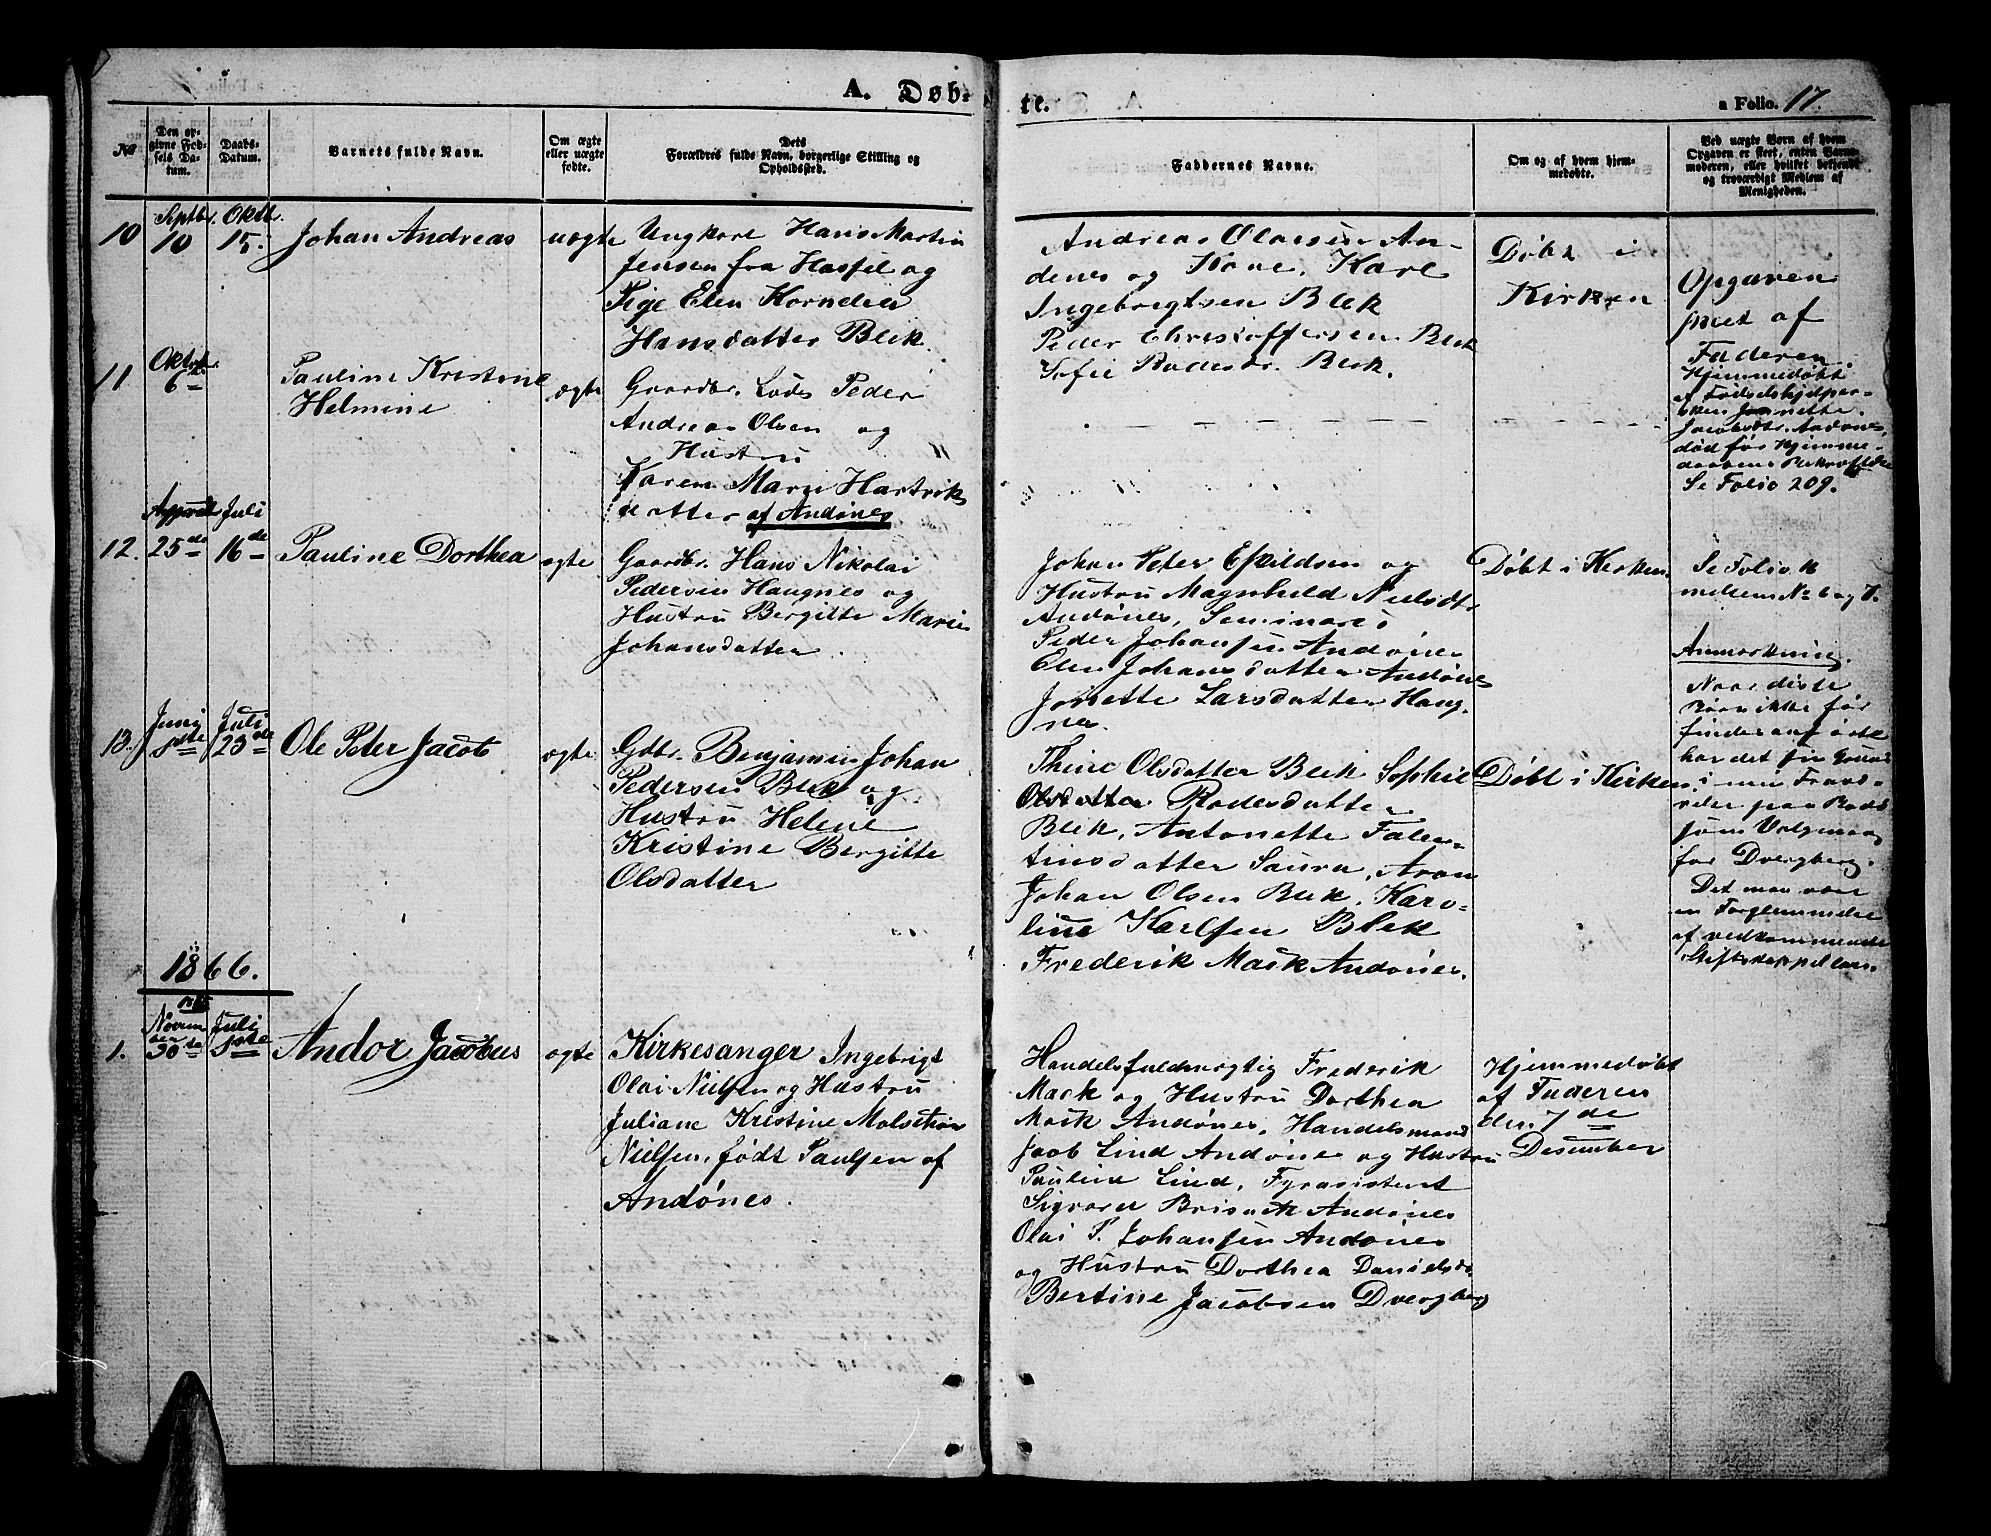 A. Døb-
te.
a Folio. 17.
No
Den op-
givne Fød-
sels Da-
tum.
Daabs-
Datum.
Barnets fulde Navn.
Om ægte
eller uægte
fødte.
Dets
Forældres fulde Navn, borgerlige Stilling og
Opholdssted.
Faddernes Navne.
Om og af hvem hjem-
medøbte.
Ved uægte Børn af hvem
Opgaven er skeet, enten Barne-
moderen, eller hvilket bekjendt
og troværdigt Medlem af
Menigheden.
Septbr. Oktb.
10 10 15. Johan Andreas uægte
Ungkarl Hans Martin
Jensen fra Hasfjel og
Pige Elen Kornelia
Hansdatter Blek.
Andreas Olaisen An-
denes og Kone, Karl
Ingebrigtsen Blek
Peder Christoffersen Blek
Sofie Rodesdr. Blek.
Døbt i
Kirken
Opgaven
skeet af
Faderen.
Oktob.
11 6te
Pauline Kristine
Helmine
ægte
Gaardbr. Lods Peder
Andreas Olsen og
Hustru
Karen Marie Hartvik
datter af Andønes
Hjemmedøbt
af Fødselshjelper-
sken Jonnette
Jacobsdtr. Andønes,
død før Hjemme-
daabens Bekræftelse
Se Folio 209.
April Juli
12. 25de 16de Pauline Dorthea ægte
Gaardbr. Hans Nikolai
Pedersen Haugnes og
Hustru Bergitte Marie
Johansdatter.
Johan Peter Eskildsen og
Hustru Magnhild Nielsdtr
Andønes, Seminarist
Peder Johansen Andønes
Elen Johansdatter Andønes
Jonette Larsdatter Haug-
nes.
Døbt i Kirken
Se Folio 16
mellem No 6 og 7.
Juni Juli
13. 1ste 23de Ole Peter Jacob ægte
Gdbr. Benjamin Johan
Pedersen Blek og
Hustru Helene
Kristine Bergitte
Olsdatter
Thine Olsdatter Blek Sophie
Olsdatter Rodesdatter
Blek, Antonette Falen-
tinsdatter Saura, Aron
Johan Olsen Blek, Karo-
line Karlsen Blek
Frederik Mack Andønes.
Døbt i Kirken
Anmærkning.
Naar disse
Børn ikke før
findes anført
har det sin Grund
i min Fravæ-
relse paa Rads
som Valgmand
for Dverberg.
Det maa være
en Forglemmelse
af vedkommende
Stiftskappellan.
1866.
1865
Novem
ber Juli
1. 30te 1ste Andor Jacobus ægte
Kirkesanger Ingebrigt
Olai Nielsen og Hustru
Juliane Kristine
Nielsen, født Paulsen af
Andønes.
Handelsfuldmægtig Frederik
Mack og Hustru Dorthea
Mack Andønes, Handelsmand
Jacob Lind Andønes og Hustru
Pauline Lind, Fyrasistent
Sigvard Andønes
Olai P. Johansen Andønes
og Hustru Dorthea Danielsdr
Bertine Jacobsen Dvergberg
Hjemmedøbt
af Faderen
den 7de
Desember